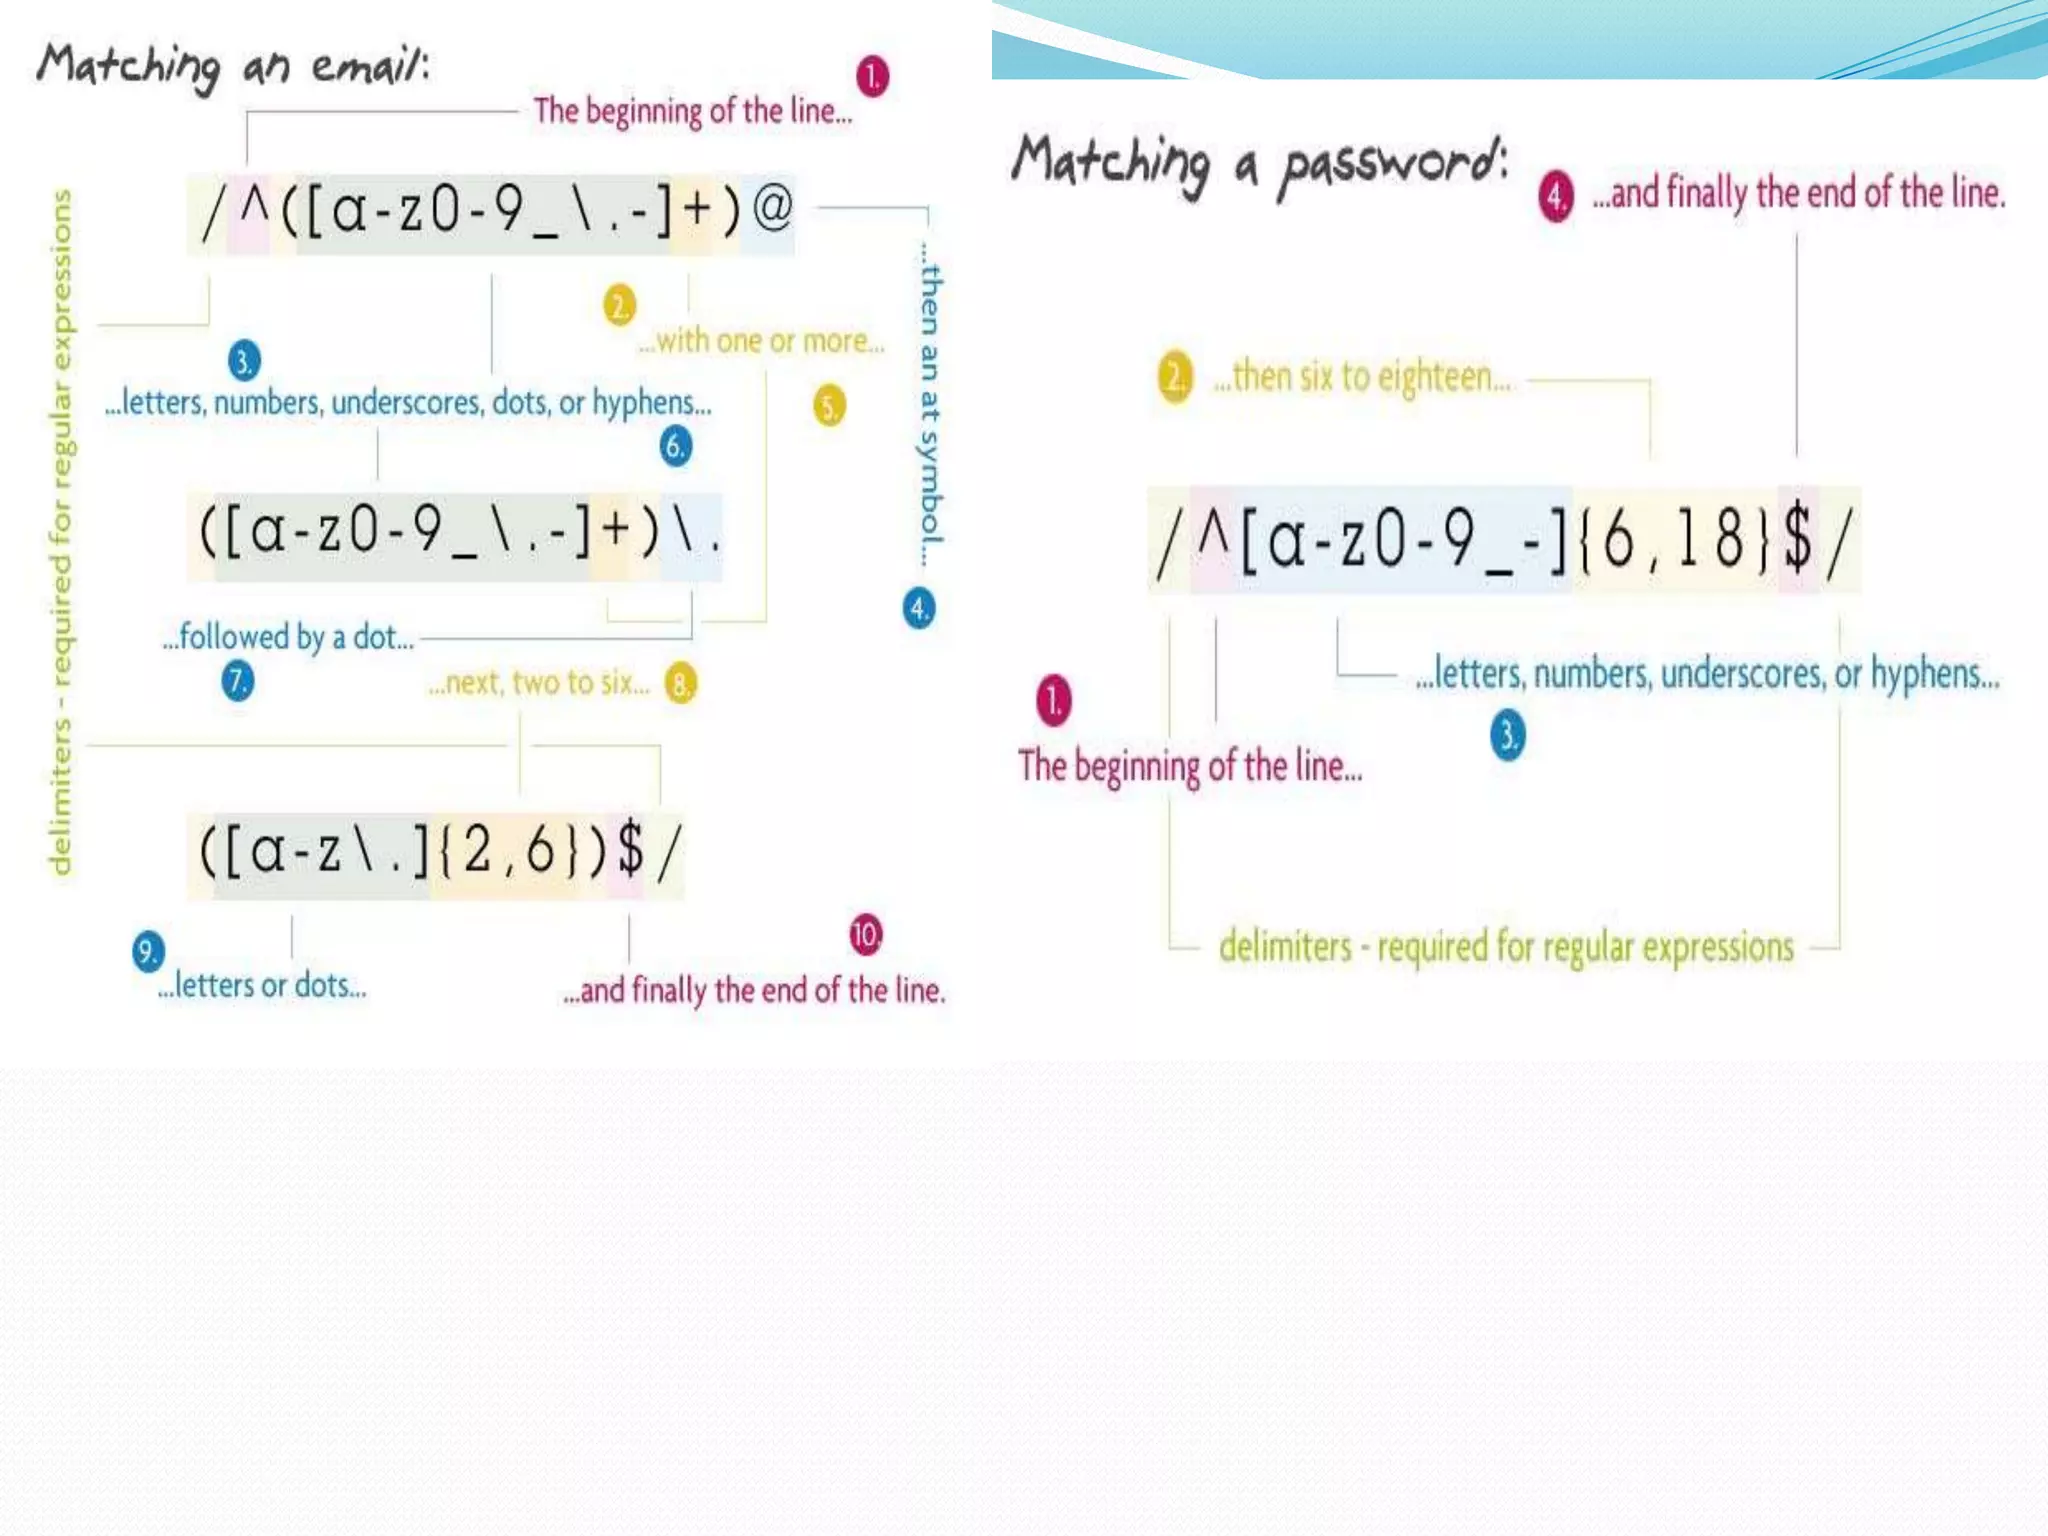 Matching an email:
1.
The beginning of the line...
/^([a-z0-9_\.-]+)@
delimiters - required for regular expressions
...then an at symbol...
4.
2.
...with one or more...
5.
3.
...letters, numbers, underscores, dots, or hyphens...
6.
([a-z0-9_\.-]+)\.
...followed by a dot...
7.
...next, two to six...
8.
([a-z\.]{2,6})$/
9.
...letters or dots...
10.
...and finally the end of the line.
Matching a password:
4.
...and finally the end of the line.
2.
...then six to eighteen...
/^[a-z0-9_-]{6,18}$/
...letters, numbers, underscores, or hyphens...
3.
1.
The beginning of the line...
delimiters - required for regular expressions